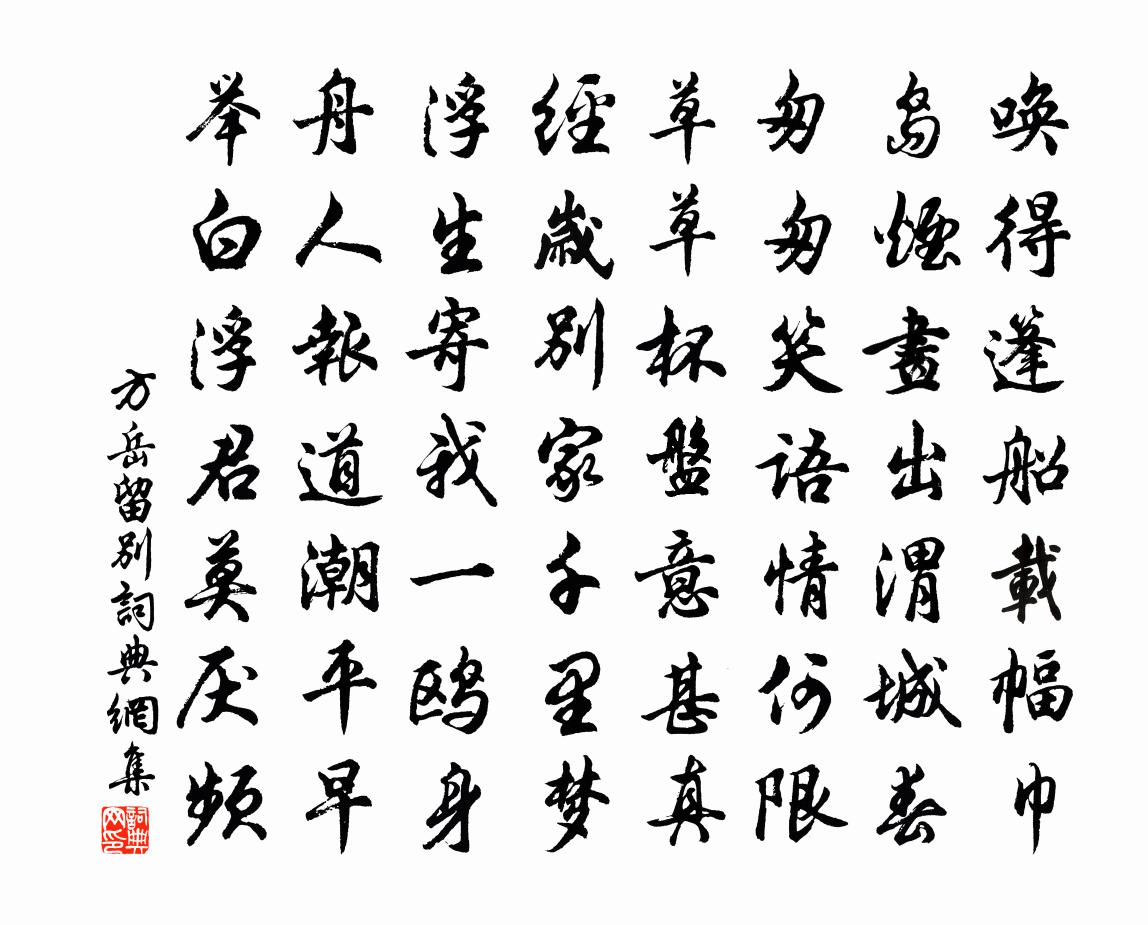 唤得蓬船載幅巾
岛煙畫出渭城春
匆匆笑语情何限
草草杯盤意甚真
經歲别家千里梦
浮生寄我一鸥身
舟人報道潮平早
举白浮君莫厌频
方岳留别詞典網集
詞典网印